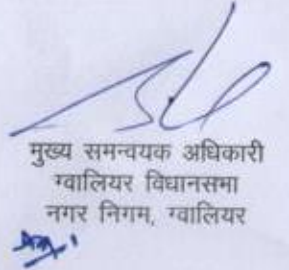 मुख्य समन्वयक अधिकारी
ग्वालियर विधानसभा
नगर निगम, ग्वालियर